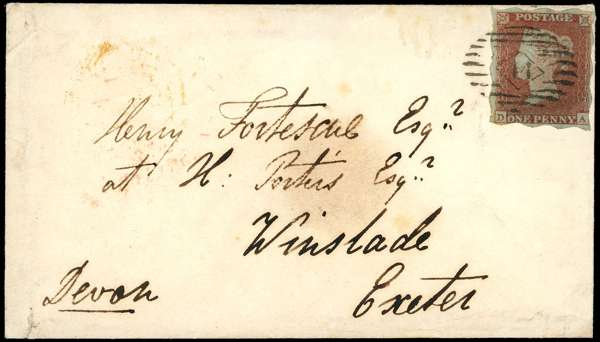 POSTAGE
ONE PENNY
D A
Henry Fortescue Esqr
at H: Porter's Esqr
Winslade
Exeter
Devon